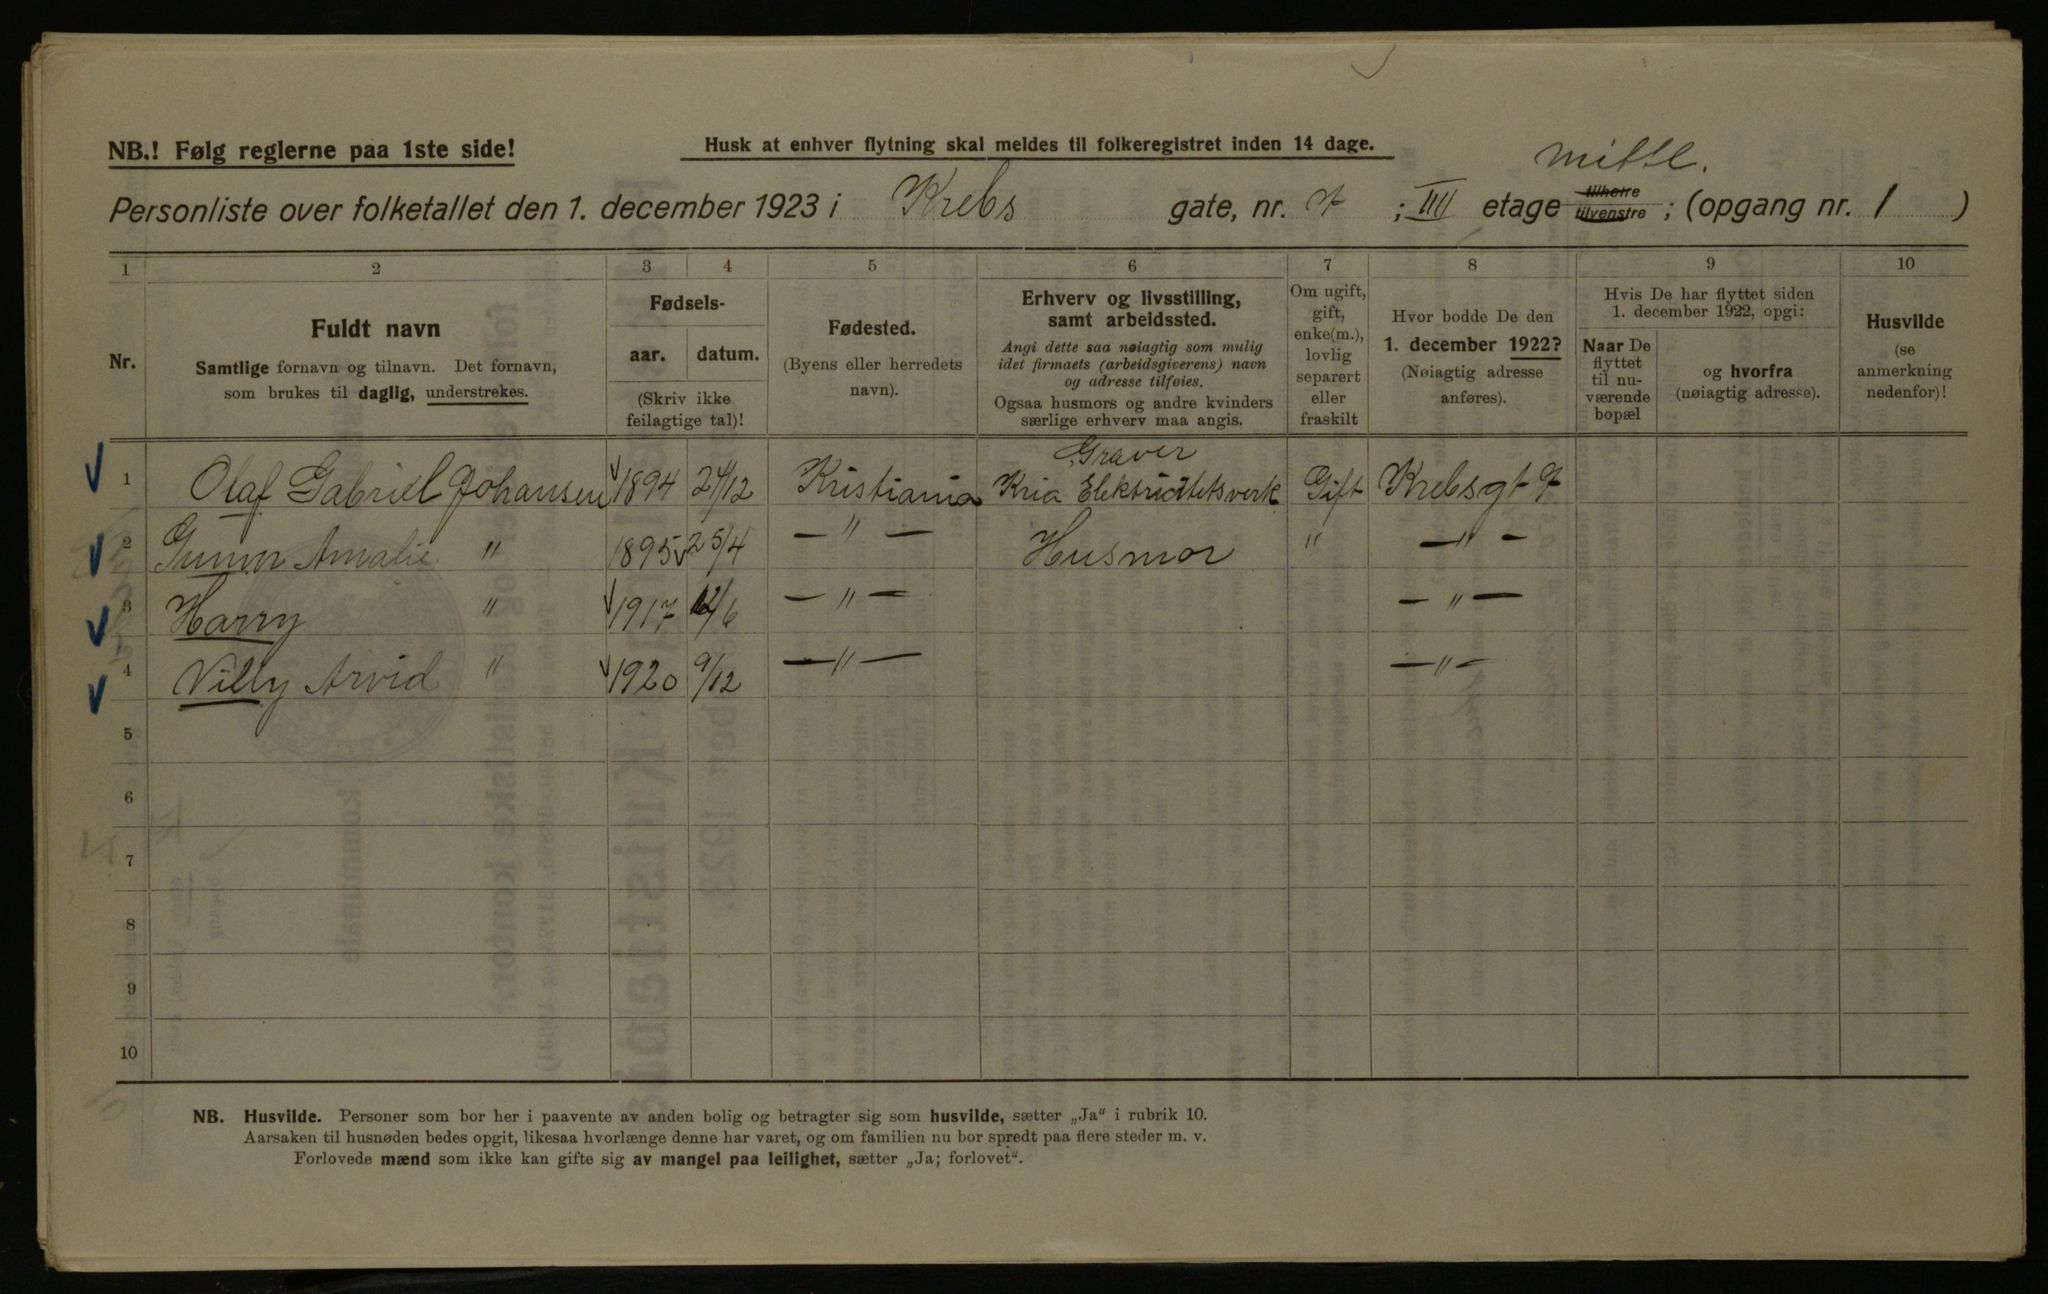 NB.! Følg reglerne paa 1ste side!
Husk at enhver flytning skal meldes til folkeregistret inden 14 dage.
mittl.
Personliste over folketallet den 1. december 1923 i Krebs gate, nr. 7 ; III etage tilhøire tilvenstre ; (opgang nr. 1 )
1 2 3 4 5 6 7 8 9 10
Nr.
Fuldt navn
Samtlige fornavn og tilnavn. Det fornavn,
som brukes til daglig, understrekes.
Fødsels-
aar. datum.
(Skriv ikke
feilagtige tal)!
Fødested.
(Byens eller herredets
navn).
Erhverv og livsstilling,
samt arbeidssted.
Angi dette saa nøiagtig som mulig
idet firmaets (arbeidsgiverens) navn
og adresse tilføies.
Ogsaa husmors og andre kvinders
særlige erhverv maa angis.
Om ugift,
gift,
enke(m.),
lovlig
separert
eller
fraskilt
Hvor bodde De den
1. december 1922?
(Nøiagtig adresse
anføres).
Hvis De har flyttet siden
1. december 1922, opgi:
Naar De
flyttet
til nu-
værende
bopæl
og hvorfra
(nøiagtig adresse).
Husvilde
(se
anmerkning
nedenfor)!
Graver
1 Olaf Gabriel Johansen 1894 24/12 Kristiania Kria Elektricitetsverk Gift Krebsgt 7
2 Gunvor Amalie " 1895 25/4 — " — Husmor " — " —
3 Harry " 1917 12/6 — " — — " —
4 Villy Arvid " 1920 9/12 — " — — " —
5
6
7
8
9
10
NB. Husvilde. Personer som bor her i paavente av anden bolig og betragter sig som husvilde, sætter „Ja“ i rubrik 10.
Aarsaken til husnøden bedes opgit, likesaa hvorlænge denne har varet, og om familien nu bor spredt paa flere steder m. v.
Forlovede mænd som ikke kan gifte sig av mangel paa leilighet, sætter „Ja; forlovet“.